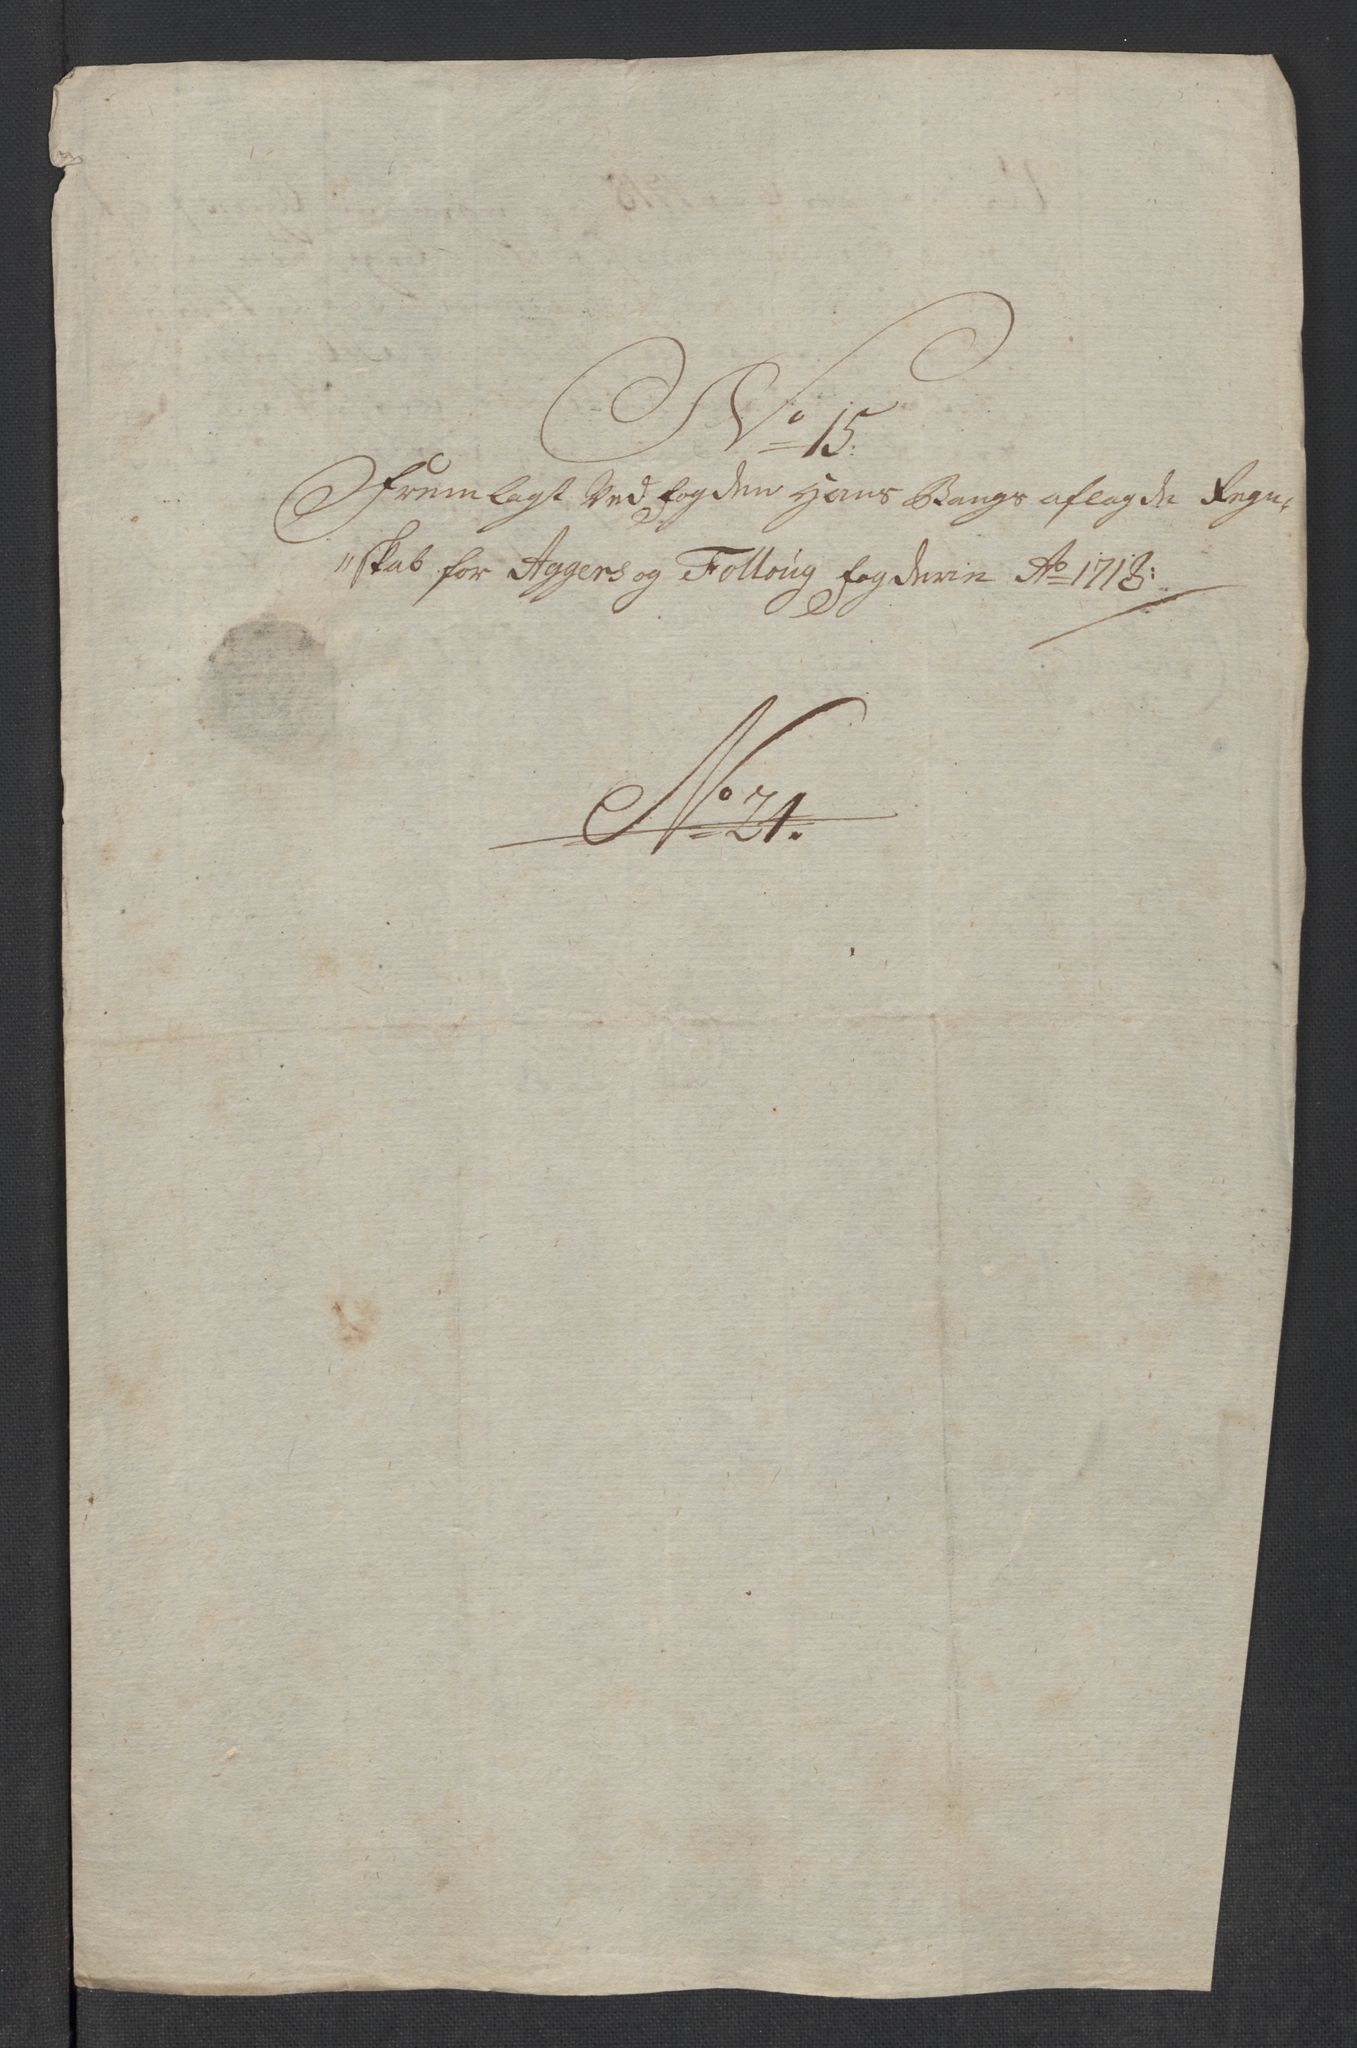 No 15.
Fremlagt Ved fogden Hans Bangs aflagde Regn-
"skab for Aggers og Folloug fogderie Ao 1718:
No 21.